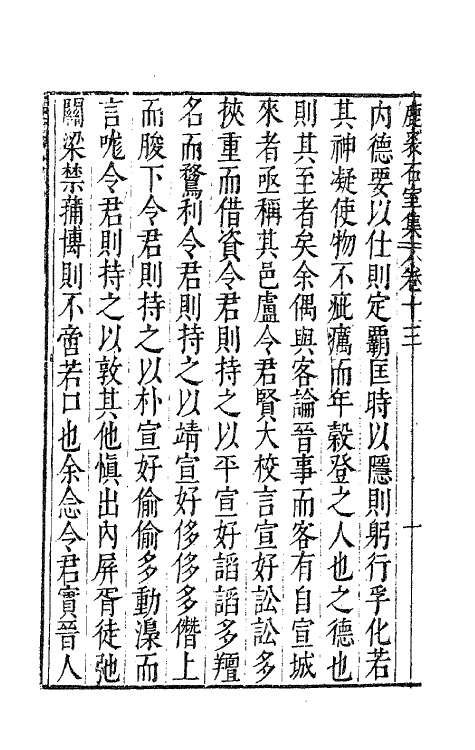 鹿裘石室集 卷十三 一
內德要以仕則定霸匡時以隱則躬行孚化若
其神凝使物不疵癘而年穀登之人也之德也
則其至者矣余偶與客論晉事而客有自宣城
來者亟稱其邑盧令君賢大校言宣好訟訟多
挾重而借資令君則持之以平宣好謟謟多羶
名而騖利令君則持之以靖宣好侈侈多僭上
而朘下令君則持之以朴宣好偷偷多動濕而
言嚨令君則持之以敦其他愼出內屏胥徒弛
關梁禁蒱博則不啻若口也余念令君實晉人